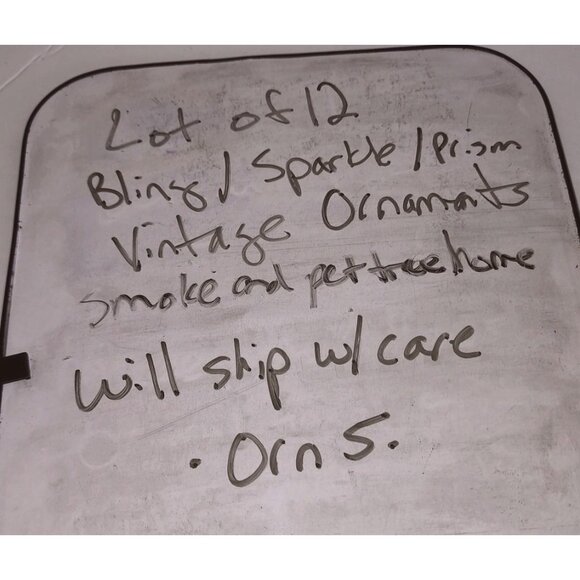 Lot of 12
Bling / Sparkle / Prism
Vintage Ornaments
Smoke and pet free home
Will ship w/ care
. Orn 5.